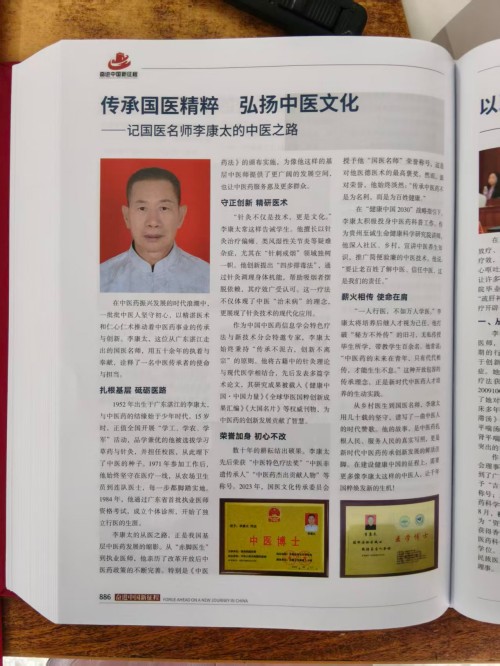 奋进中国新征程
传承国医精粹 弘扬中医文化
——记国医名师李康太的中医之路
在中医药振兴发展的时代浪潮中，
一批批中医人坚守初心，以精湛医术
和仁心仁术推动着中医药事业的传承
与创新。李康太，这位从广东湛江走
出的国医名师，用五十余年的执着与
奉献，诠释了一名中医传承者的使命
与担当。
扎根基层 砥砺医路
1952 年出生于广东湛江的李康太，
与中医药的结缘始于少年时代。15 岁
时，正值全国开展“学工、学农、学
军”活动，品学兼优的他被选拔学习
草药与针灸，并担任校医，从此埋下
了中医的种子。1971 年参加工作后，
他始终坚守在医疗一线，从农场卫生
员到连队医士，每一步都脚踏实地。
1984 年，他通过广东省首批执业医师
资格考试，成立个体诊所，开始了独
立行医的生涯。
李康太的从医之路，正是我国基层
中医药发展的缩影。从“赤脚医生”
到执业医师，他亲历了改革开放后中
医药政策的不断完善。特别是《中医
药法》的颁布实施，为像他这样的基
层中医师提供了更广阔的发展空间，
也让中医药服务惠及更多群众。
守正创新 精研医术
“针灸不仅是技术，更是文化。”
李康太常这样告诫学生。他擅长以针
灸治疗偏瘫、类风湿性关节炎等疑难
杂症，尤其在“针刺戒烟”领域独树
一帜。他创新提出“四步排毒法”，通
过针灸调理身体机能，帮助吸烟者摆
脱依赖，其疗效广受认可。这一疗法
不仅体现了中医“治未病”的理念，
更展现了针灸技术的现代化应用。
作为中国中医药信息学会特色疗
法与新技术分会特邀专家，李康太始
终秉持“传承不泥古，创新不离
宗”的原则。他将古籍中的针灸理论
与现代医学相结合，先后发表多篇学
术论文，其研究成果被载入《健康中
国・中国力量》《全球华医国粹创新成
果汇编》《大国名片》等权威刊物，为
中医药的创新发展贡献了智慧。
荣誉加身 初心不改
数十年的耕耘结出硕果。李康太
先后荣获“中医特色疗法奖”“中医非
遗传承人”“中医药杰出贡献人物”等
称号。2023 年，国医文化传承委员会
授予他“国医名师”荣誉称号，这是
对他医德医术的最高褒奖。然而，面
对荣誉，他始终淡然：“传承中医不
是为名利，而是为百姓健康。”
在“健康中国 2030”战略指引下，
李康太积极投身中医药科普工作。作
为贵州至诚生命健康科学研究院讲师，
他深入社区、乡村，宣讲中医养生知
识，推广简便验廉的中医技术。他说：
“要让老百姓了解中医、信任中医，这
是我们的责任。”
薪火相传 使命在肩
“一人行医，不如万人学医。”李
康太将培养后继人才视为己任。他打
破“秘方不外传”的旧习，无私传授
毕生所学，带教学生百余名。他常说：
“中医药的未来在青年，只有代代相
传，才能生生不息。”这种开放包容的
传承理念，正是新时代中医药人才培
养的生动实践。
从乡村医生到国医名师，李康太
用几十载的坚守，谱写了一曲中医人
的时代赞歌。他的故事，是中医药扎
根人民、服务人民的真实写照，更是
新时代中医药传承创新发展的鲜活注
脚。在建设健康中国的征程上，需要
更多像李康太这样的中医人，让千年
国粹焕发新的生机！
中医博士
医学博士
886 奋进中国新征程 FORGE AHEAD ON A NEW JOURNEY IN CHINA
以